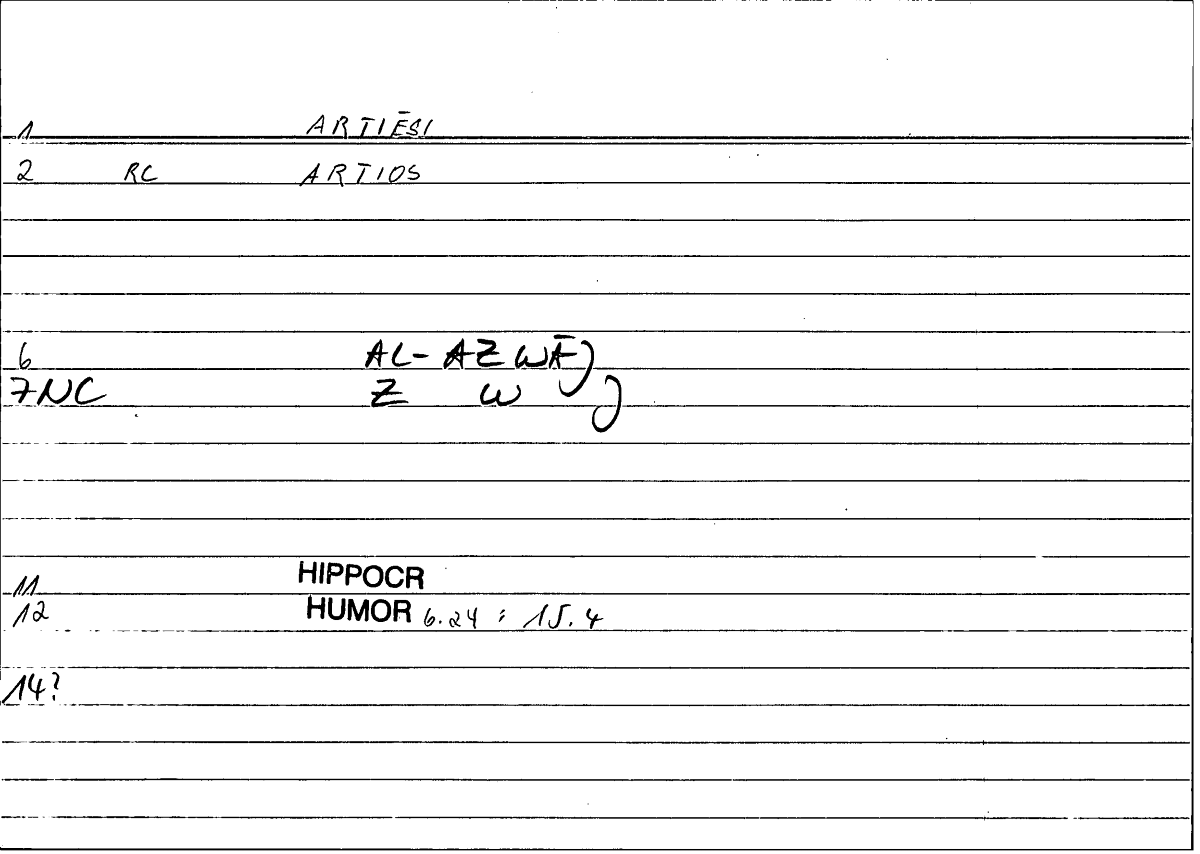 1 ARTIĒSI
2 RC ARTIOS
6 AL-AZWĀJ
7NC Z W J
11 HIPPOCR
12 HUMOR 6.24 : 15.4
14?